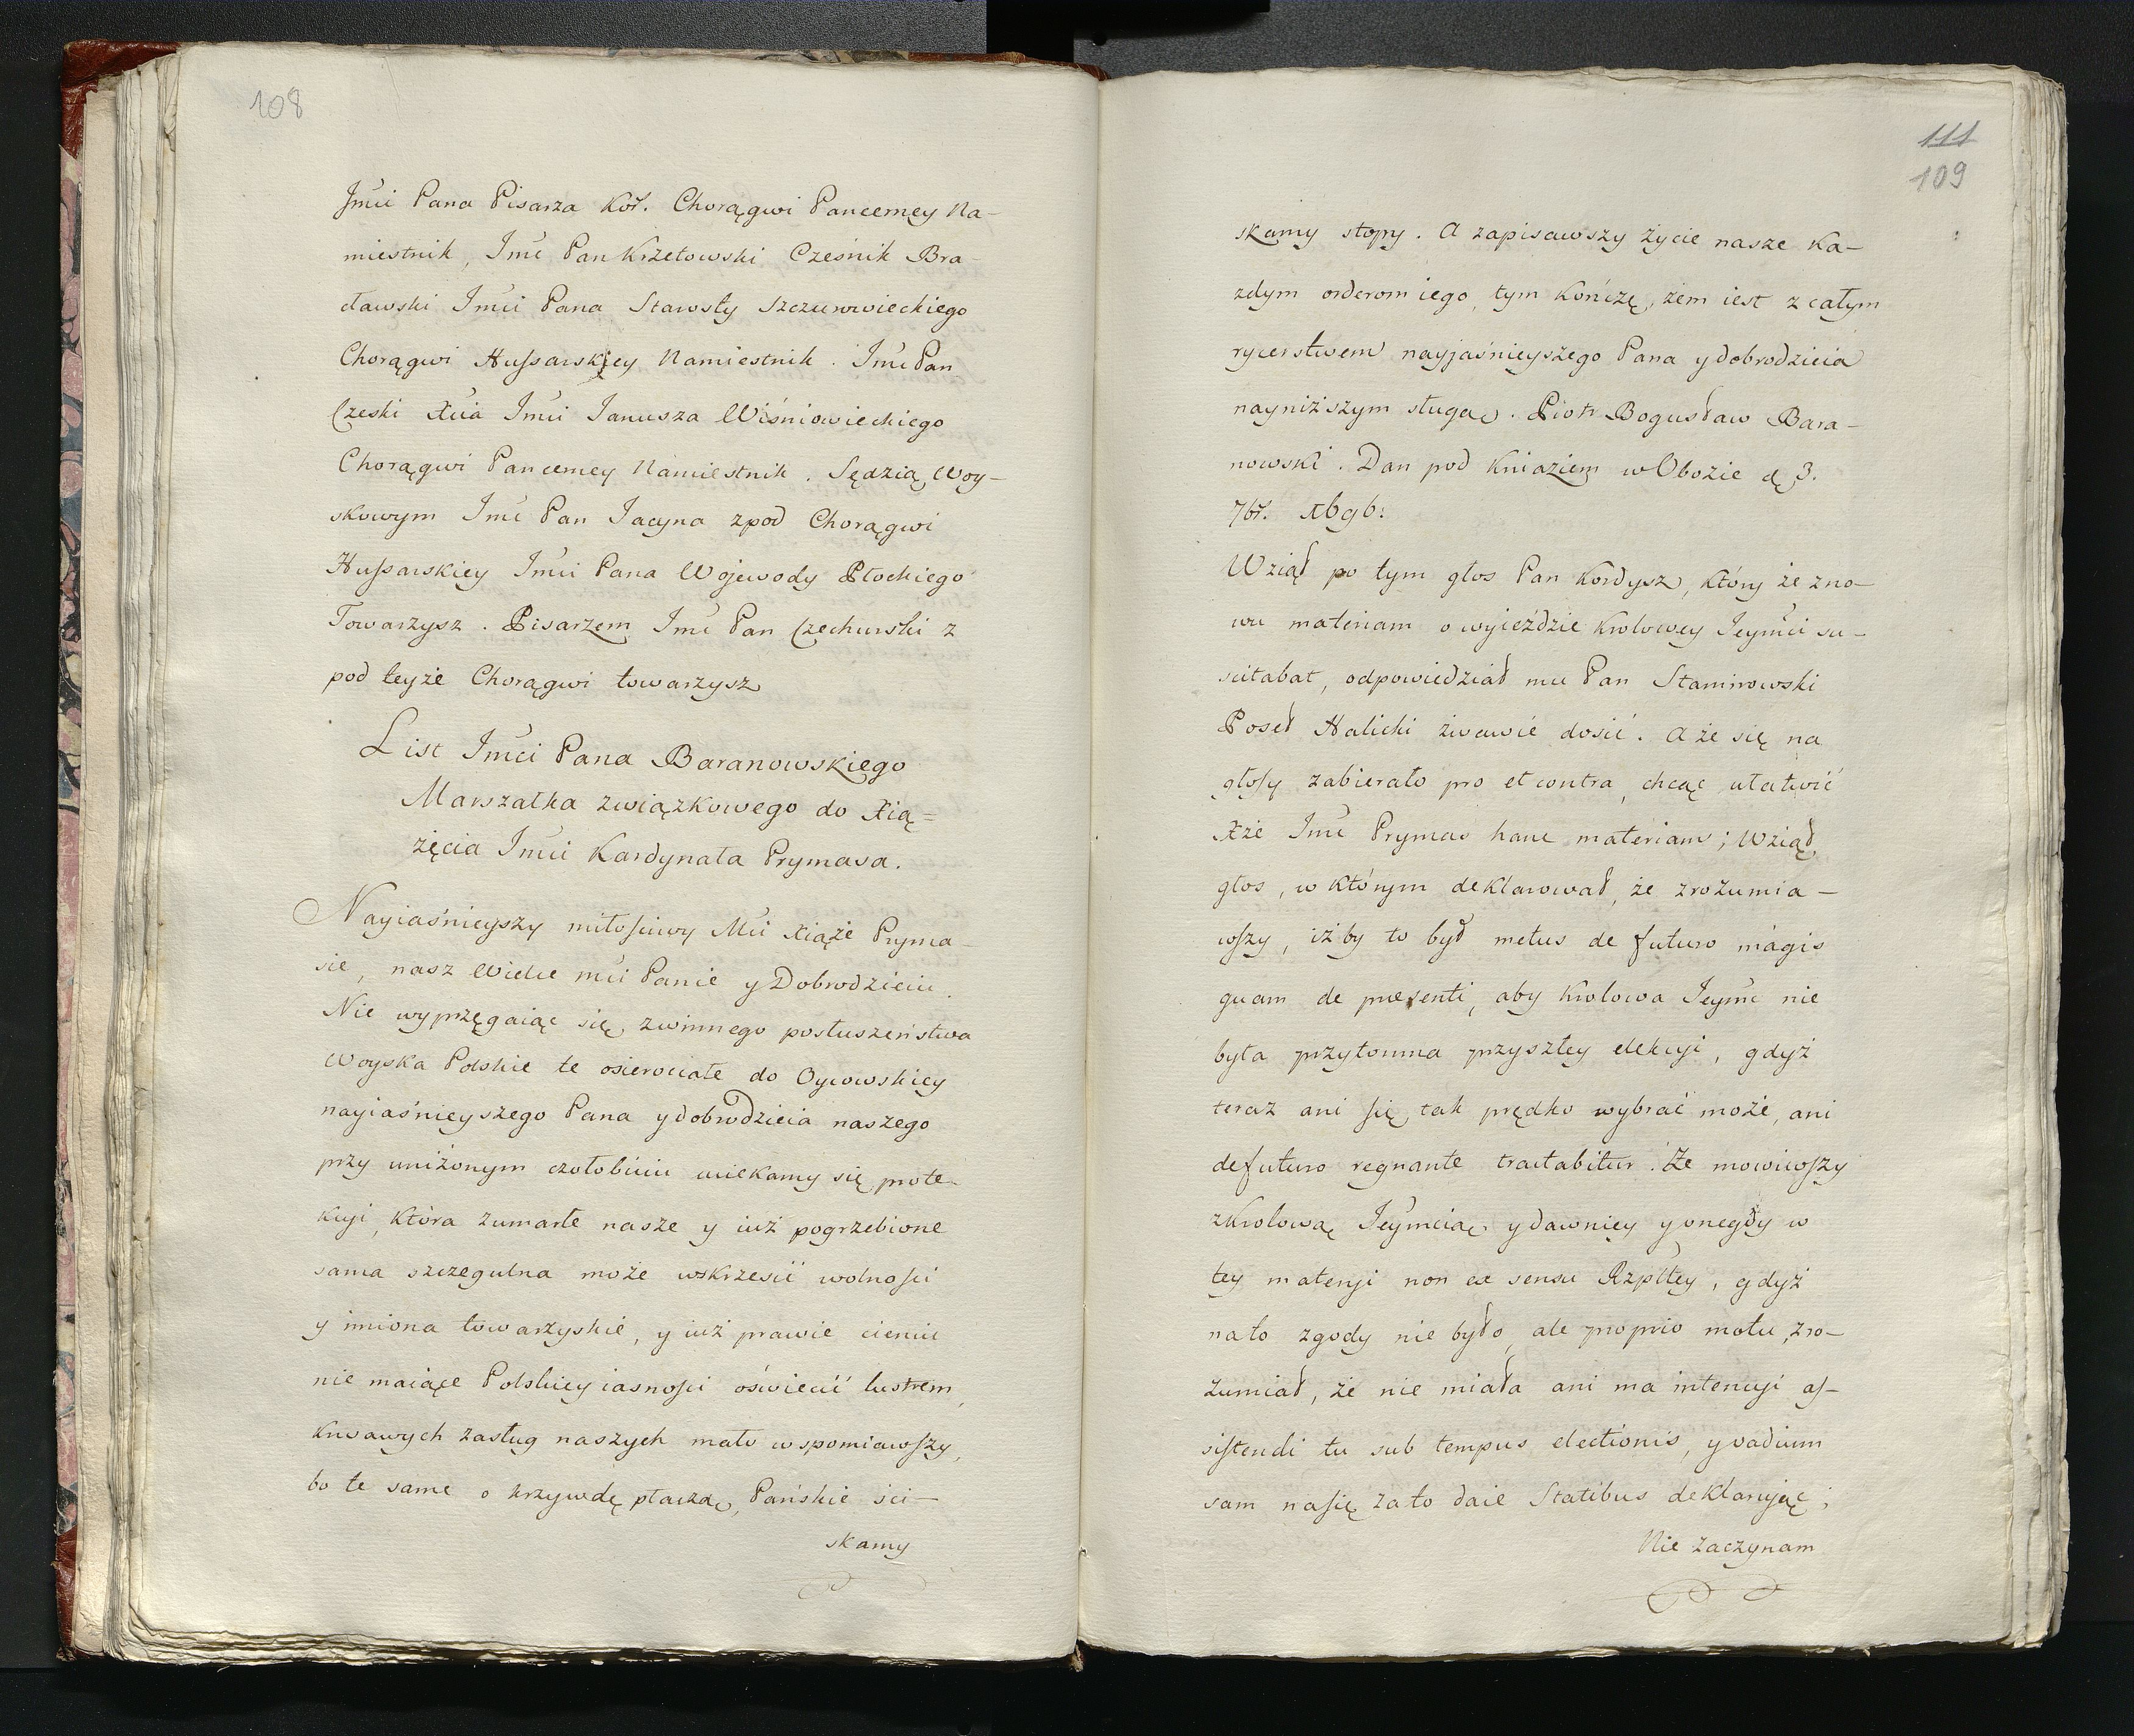 108
Jmci Pana Pisarza Kor. Chorągwi Pancerney Na-
miestnik, Jmć Pan Krzetowski Cześnik Bra-
cławski Jmci Pana Starosty Szczurowieckiego
Chorągwi Hussarskiey Namiestnik. Jmć Pan
Czeski Xcia Jmci Janusza Wiśniowieckiego
Chorągwi Pancerney Namiestnik. Sędzią Woy-
skowym Jmć Pan Jacyna zpod Chorągwi
Hussarskiey Jmci Pana Wojewody Płockiego
Towarzysz. Pisarzem Jmć Pan Czechurski z
pod teyże Chorągwi towarzysz
List Jmci Pana Baranowskiego
Marszałka związkowego do Xią=
żęcia Jmci Kardynała Prymasa.
Nayiaśnieyszy miłościwy Mci Xiąże Pryma-
sie, nasz Wielce mci Panie y Dobrodzieiu.
Nie wyprzęgaiąc się zwinnego posłuszeństwa
Woyska Polskie te osierociałe do Oycowskiey
nayiaśnieyszego Pana y dobrodzieia naszego
przy uniżonym czołobiciu uciekamy się prote-
kcyi, która zumarłe nasze y iuż pogrzebione
sama szczegulna może wskrzesić wolności
y imiona towarzyskie, y iuż prawie cieniu
nie maiące Polskiey iasności oświecić lustrem,
krwawych zasług naszych mało wspomiawszy,
bo te same o krzywdę płaczą, Pańskie ści-
skamy
111
109
skamy stopy. A zapisawszy życie nasze ka-
zdym orderom iego, tym kończę, żem iest z całym
rycerstwem nayjaśnieyszego Pana y dobrodzieia
nayniższym sługą. Piotr Bogusław Bara-
nowski. Dan pod Kniaziem w Obozie d. 3.
7br. 1696:
Wziął po tym głos Pan Kordysz, który że zno-
wu materiam o wyieździe Krolowey Jeymci su-
scitabat, odpowiedział mu Pan Stamirowski
Poseł Halicki żwawie dosić. A że się na
głosy zabierało pro et contra, chcąc ułatwić
Xże Jmć Prymas hanc materiam; Wziął
głos, w którym deklarował, że zrozumia-
wszy, iżby to był metus de futuro magis
quam de presenti, aby Krolowa Jeymć nie
była przytomna przyszłey elekcyi, gdyż
teraz ani się tak prędko wybrać może, ani
de futuro regnante tractabitur. Że mowiwszy
z Krolową Jeymcią y dawniey y onegdy w
tey materyi non ex sensu Rzpltey, gdyż
na to zgody nie było, ale proprio motu, zro-
zumiał, że nie miała ani ma intencyi as-
sistendi tu sub tempus electionis, y vadium
sam nasię za to daie Statibus deklarując;
Nie zaczynam